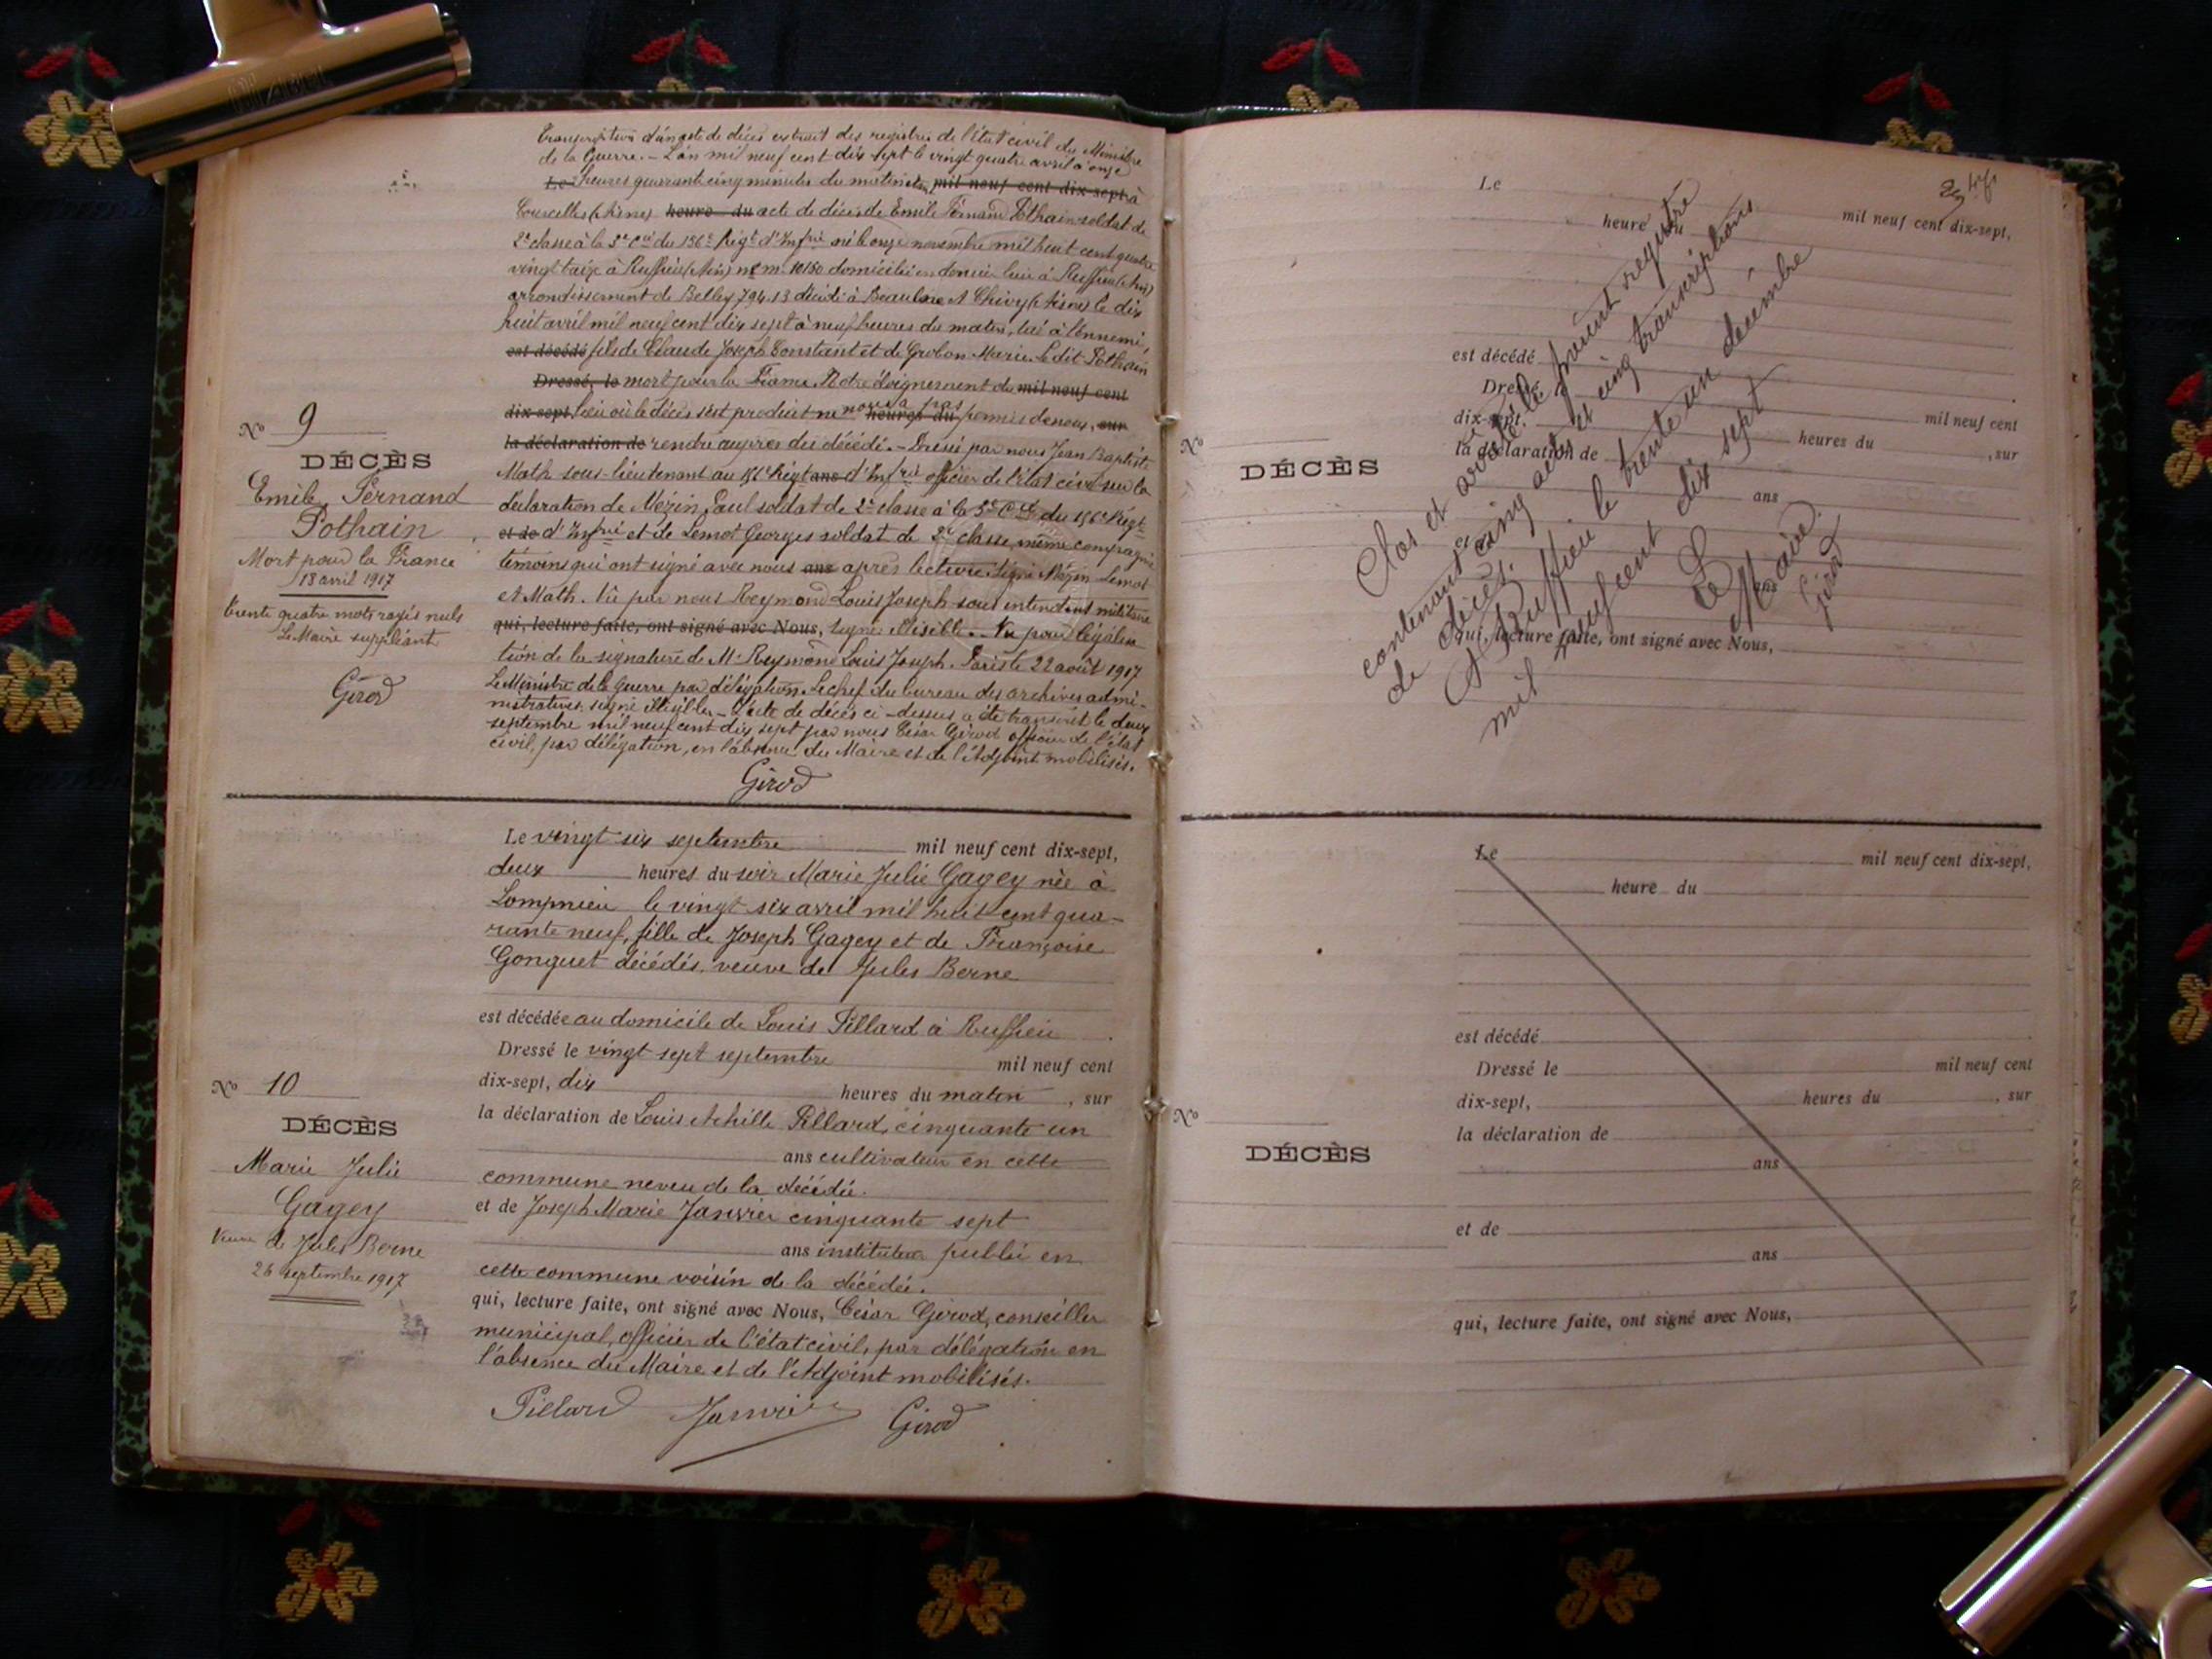 Transcription d'un acte de décès extrait des registres de l'état civil du Ministère
de la Guerre. - L'an mil neuf cent dix sept le vingt quatre avril à onze
Le heures quarante cinq minutes du matin mil neuf cent dix-sept, à
Courcelles (Aisne) heure du acte de décès de Emile Fernand Pothain soldat de
2e classe à la 3e Cie du 156e Régt d'Infrie né le onze novembre mil huit cent quatre
vingt seize à Ruffieu (Ain) domicilié en dernier lieu à Ruffieu (Ain)
arrondissement de Belley 794.13 décédé à Beaulne et Chivy (Aisne) le dix
huit avril mil neuf cent dix sept à neuf heures du matin, tué à l'ennemi,
est décédé fils de Claude Joseph Constant et de Grobon Marie. Le dit Pothain
Dressé, le mort pour la France. Notre éloignement du mil neuf cent
dix-sept, lieu où le décès s'est produit ne nous a pas heures du permis de nous, sur
la déclaration de rendre auprès du décédé. - Dressé par nous Jean Baptiste
Math sous-lieutenant au 156e Régt ans d'Infrie officier de l'état civil sur la
déclaration de Mézin Paul soldat de 2e classe à la 3e Cie du 156e Régt
et de d'Infrie et de Lemot Georges soldat de 2e classe, même compagnie
témoins qui ont signé avec nous ans après lecture. Signé Mézin Lemot
et Math. Vu par nous Reymond Louis Joseph sous intendant militaire
qui, lecture faite, ont signé avec Nous, signé: illisible. Vu pour légalisa
tion de la signature de Mr Reymond Louis Joseph. Paris le 22 août 1917
Le Ministre de la Guerre par délégation. Le chef du bureau des archives admi-
nistratives, signé illisible. - L'acte de décès ci-dessus a été transcrit le deux
septembre mil neuf cent dix sept par nous César Girod officier de l'état
civil, par délégation, en l'absence du Maire et de l'Adjoint mobilisés.
Girod
No 9
DÉCÈS
Emile Fernand
Pothain
Mort pour la France
18 avril 1917
trente quatre mots rayés nuls
Le Maire suppléant
Girod
Le vingt six septembre mil neuf cent dix-sept,
deux heures du soir Marie Julie Gagey née à
Lompnieu le vingt six avril mil huit cent qua-
rante neuf, fille de Joseph Gagey et de Françoise
Gonguet décédés, veuve de Jules Berne
est décédée au domicile de Louis Pillard à Ruffieu
Dressé le vingt sept septembre mil neuf cent
dix-sept, dix heures du matin, sur
la déclaration de Louis Achille Pillard, cinquante un
ans cultivateur en cette
commune neveu de la décédée.
et de Joseph Marie Janvier cinquante sept
ans instituteur public en
cette commune voisin de la décédée.
qui, lecture faite, ont signé avec Nous, César Girod, conseiller
municipal, officier de l'état civil, par délégation en
l'absence du Maire et de l'Adjoint mobilisés.
Pillard Janvier Girod
No 10
DÉCÈS
Marie Julie
Gagey
Veuve de Jules Berne
26 septembre 1917
Le mil neuf cent dix-sept,
heure du
est décédé
Dressé le mil neuf cent
dix-sept, heures du , sur
la déclaration de
ans
et de
ans
qui, lecture faite, ont signé avec Nous,
No
DÉCÈS
Clos et arrêté le présent registre
contenant cinq actes et cinq transcriptions
de décès.
A Ruffieu le trente un décembre
mil neuf cent dix sept
Le Maire.
Girod
Le mil neuf cent dix-sept,
heure du
est décédé
Dressé le mil neuf cent
dix-sept, heures du , sur
la déclaration de
ans
et de
ans
qui, lecture faite, ont signé avec Nous,
No
DÉCÈS